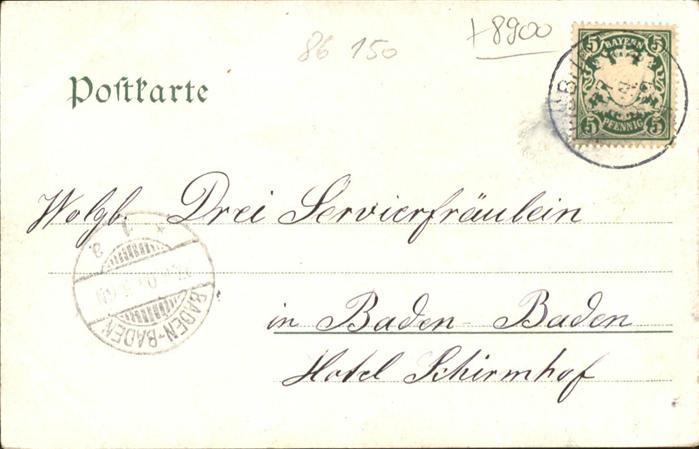 86 150
+8900
5 BAYERN 5
5 PFENNIG 5
Postkarte
Wolgb. Drei Servierfräulein
in Baden-Baden
Hotel Schirmhof
BADEN-BADEN